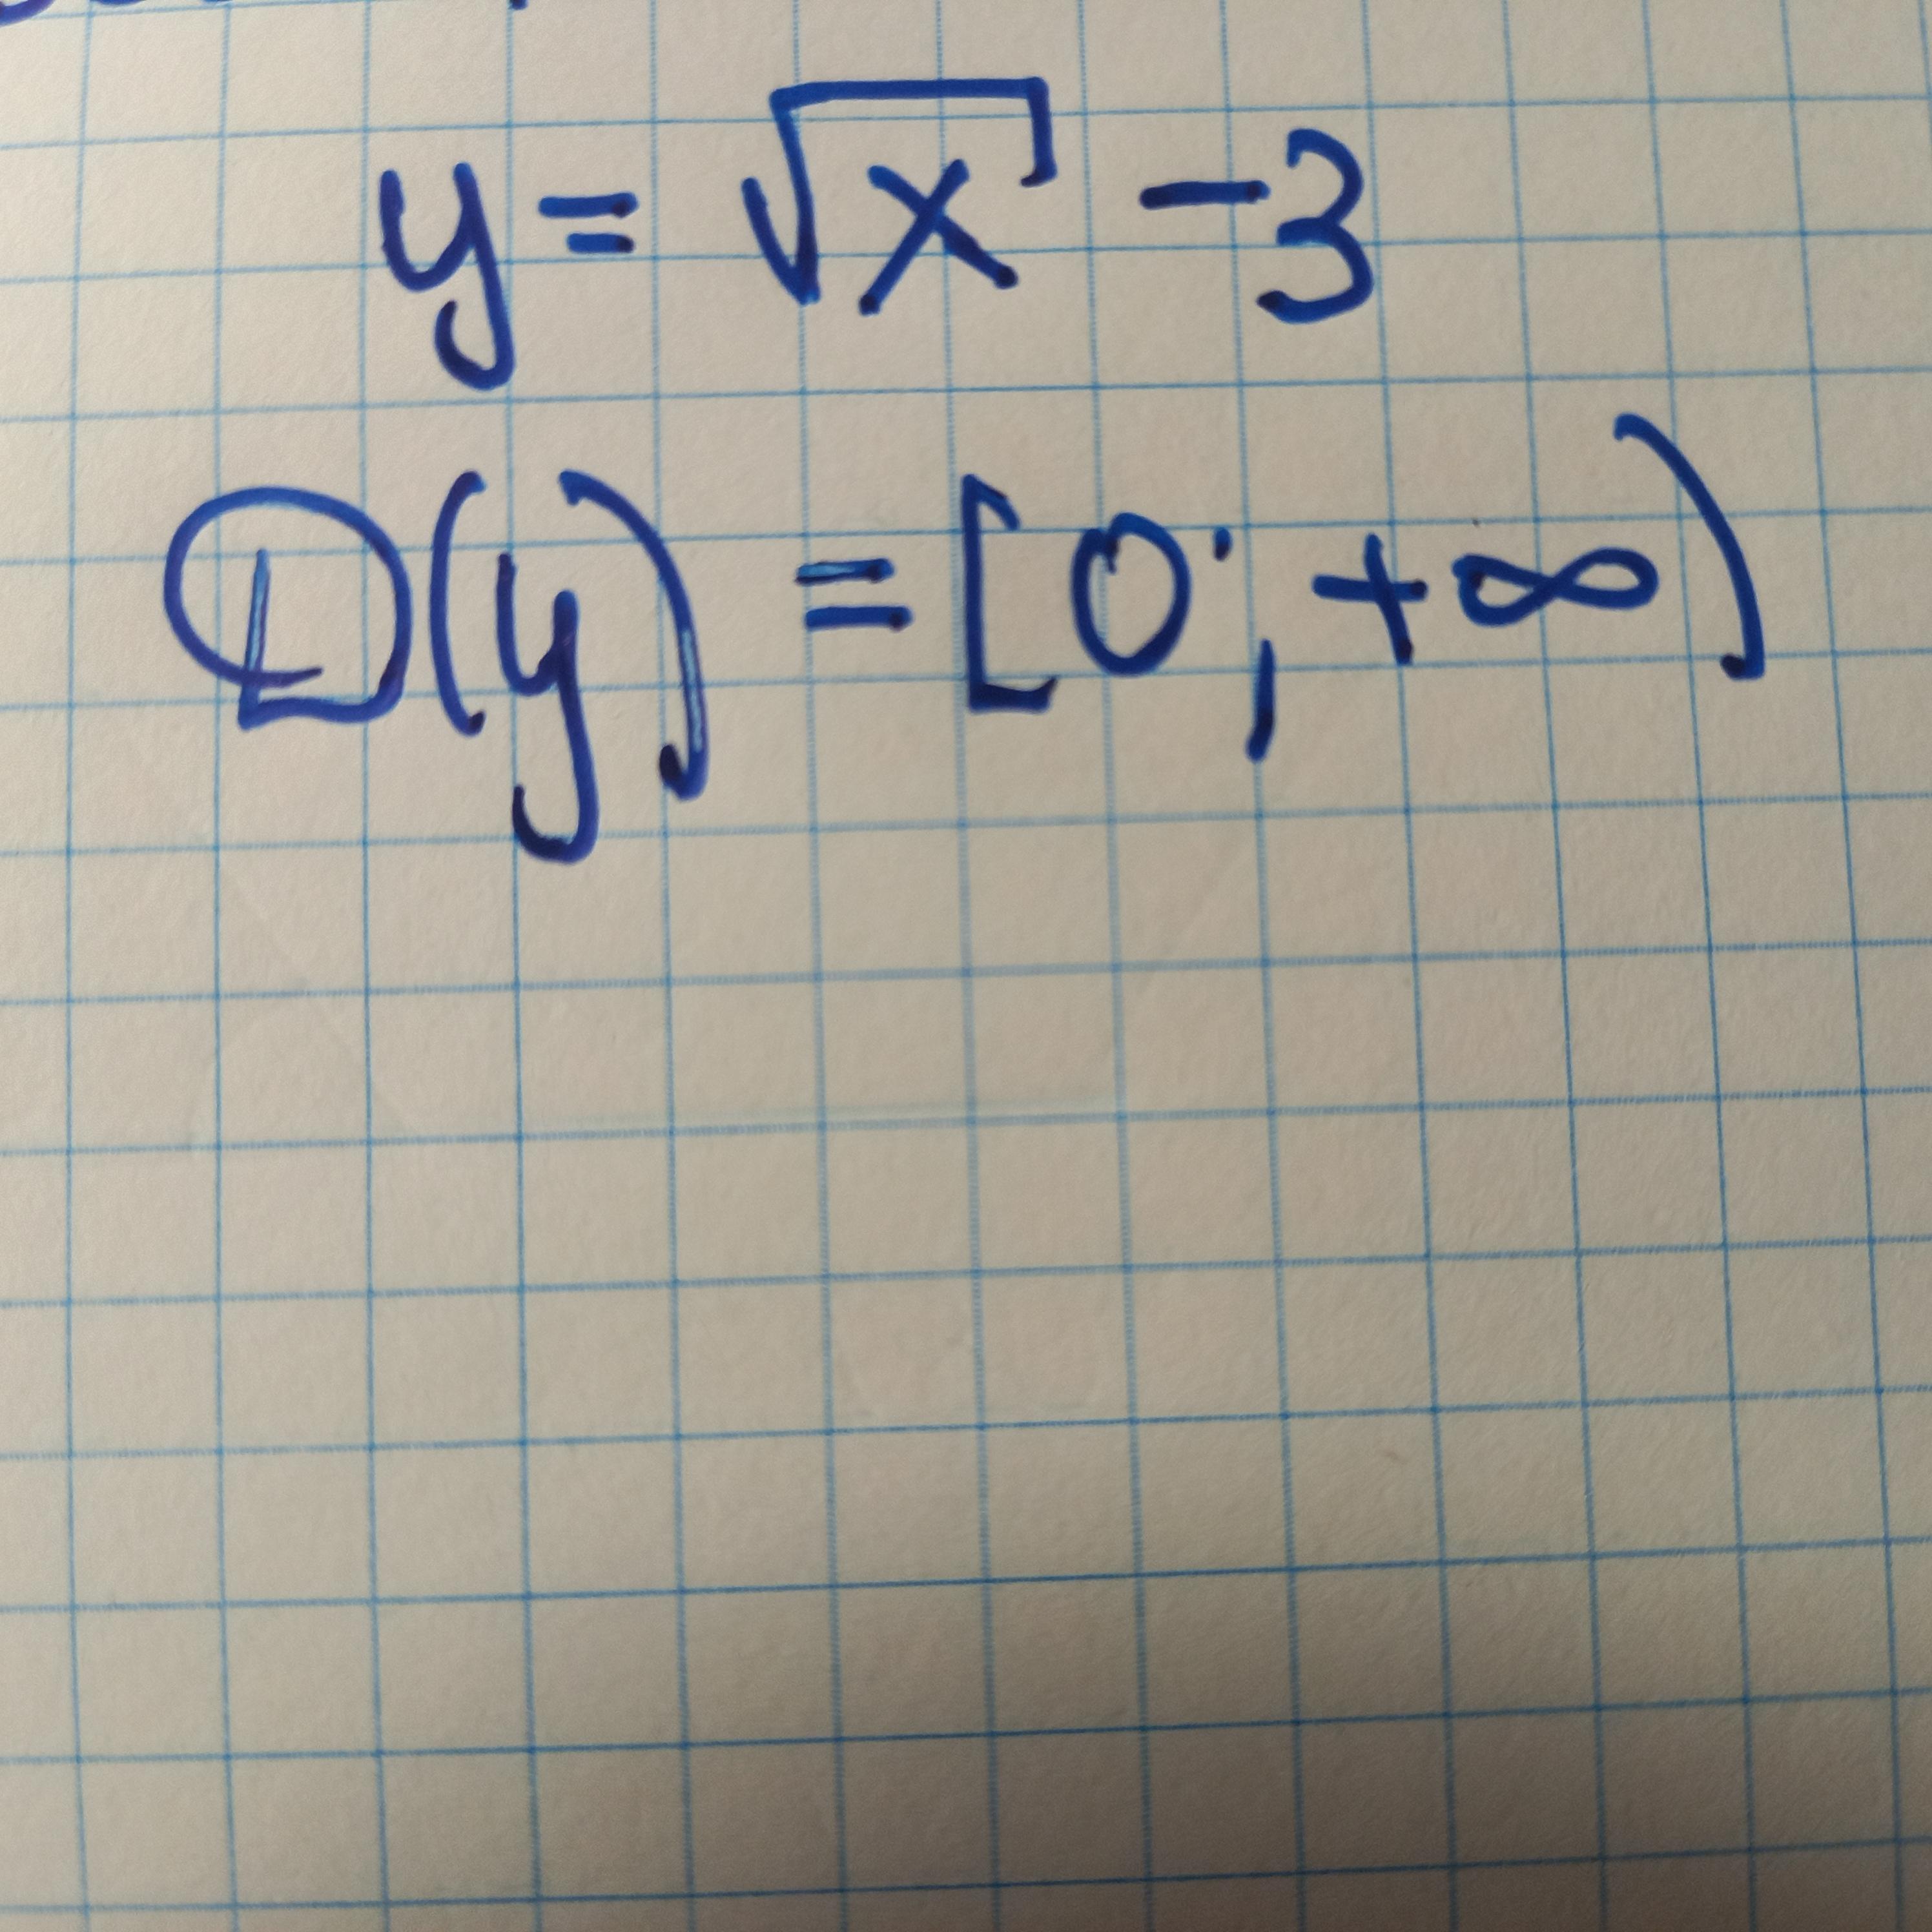 y = √x - 3
D(y) = [0; +∞)